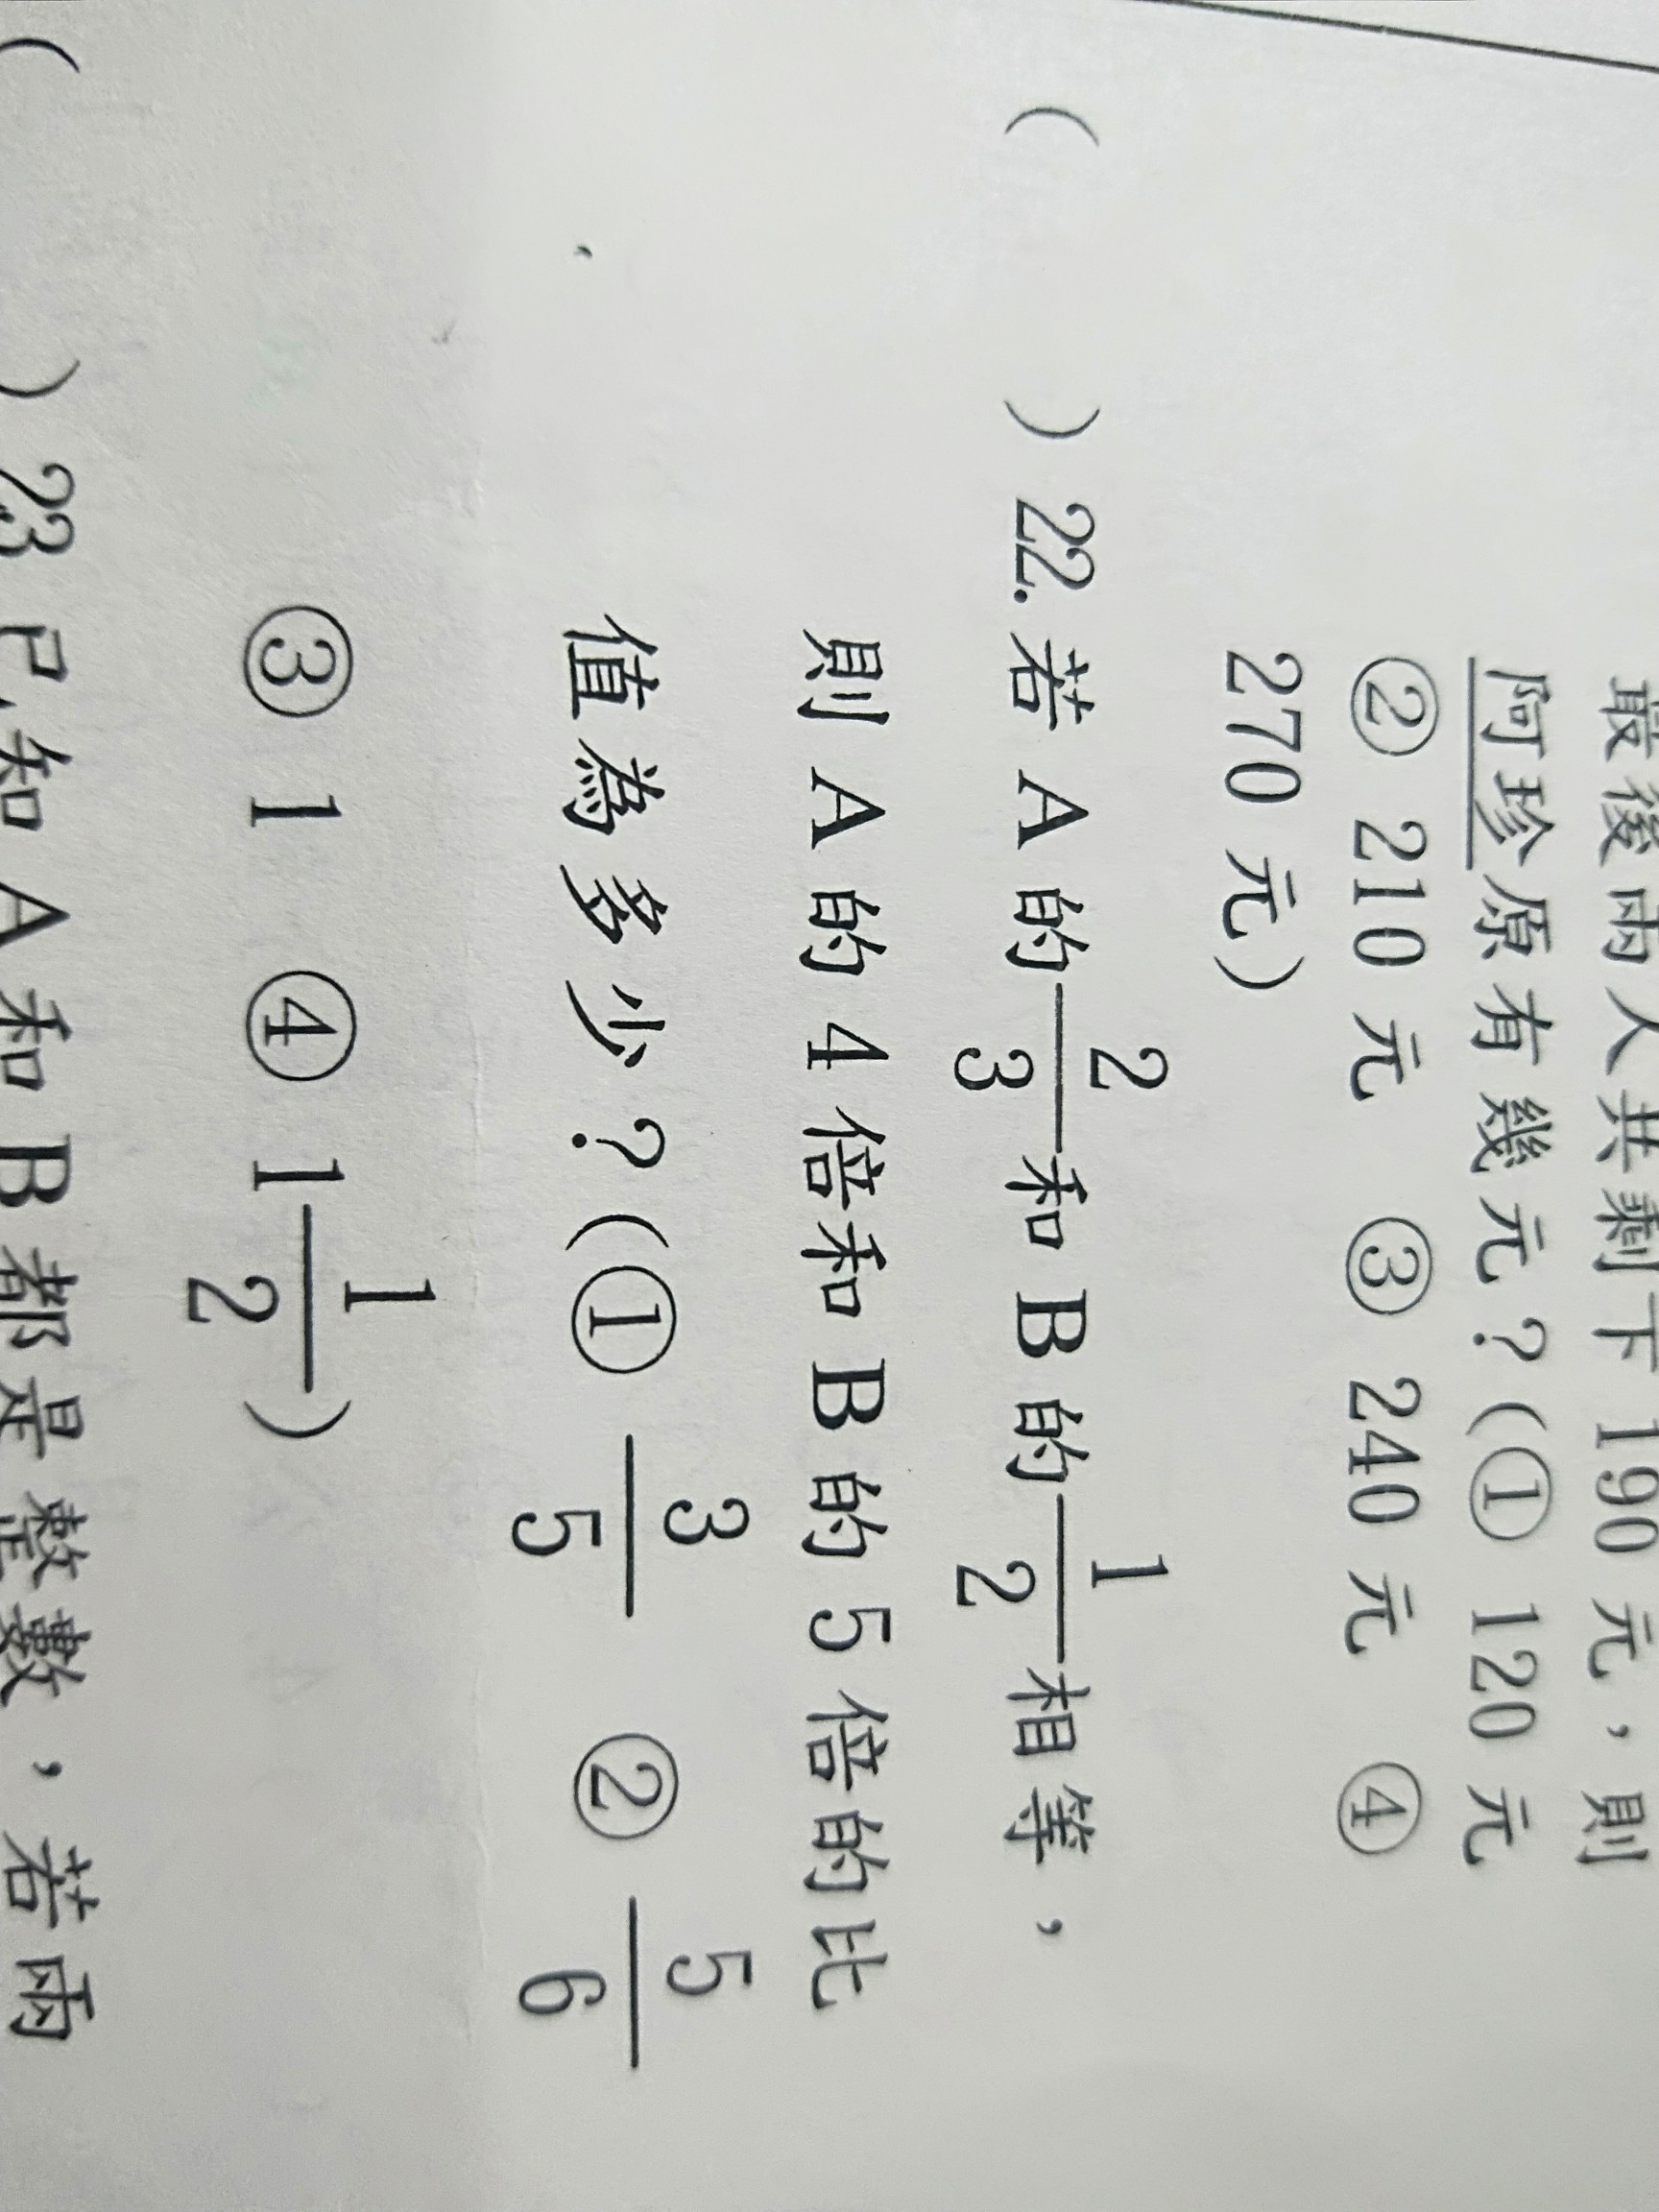 最後兩人共剩下 190 元，則
阿珍原有幾元？(① 120 元
② 210 元 ③ 240 元 ④
270 元)
( ) 22. 若 A 的 2/3 和 B 的 1/2 相等，
則 A 的 4 倍和 B 的 5 倍的比
值為多少？(① 3/5 ② 5/6
③ 1 ④ 1 1/2)
( ) 23 已知 A 和 B 都是整數，若兩